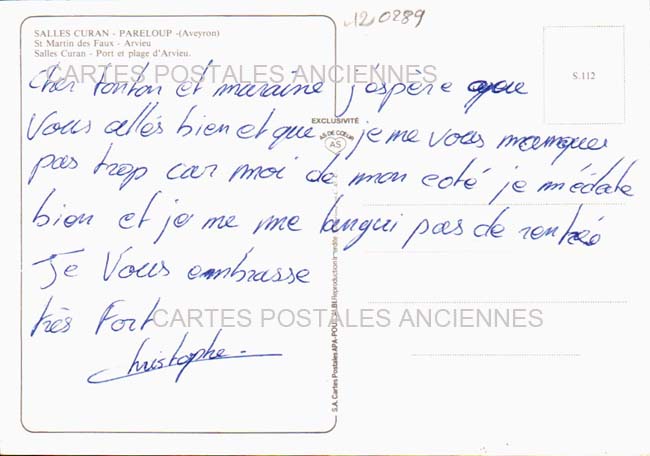 120889
SALLES CURAN - PARELOUP -(Aveyron)
St Martin des Faux - Arvieu
Salles Curan - Port et plage d'Arvieu.
S.112
CARTES POSTALES ANCIENNES
Cher tonton et maraine j'espère que
Vous allés bien et que je me vous manque
pas trop car moi de mon coté je m'éclate
bien et je me me langui pas de rentré
Je Vous embrasse
très Fort
Christophe
EXCLUSIVITÉ
AS DE CŒUR
AS
CARTES POSTALES ANCIENNES
S.A. Cartes Postales APA-POUX ALBI Reproduction interdite